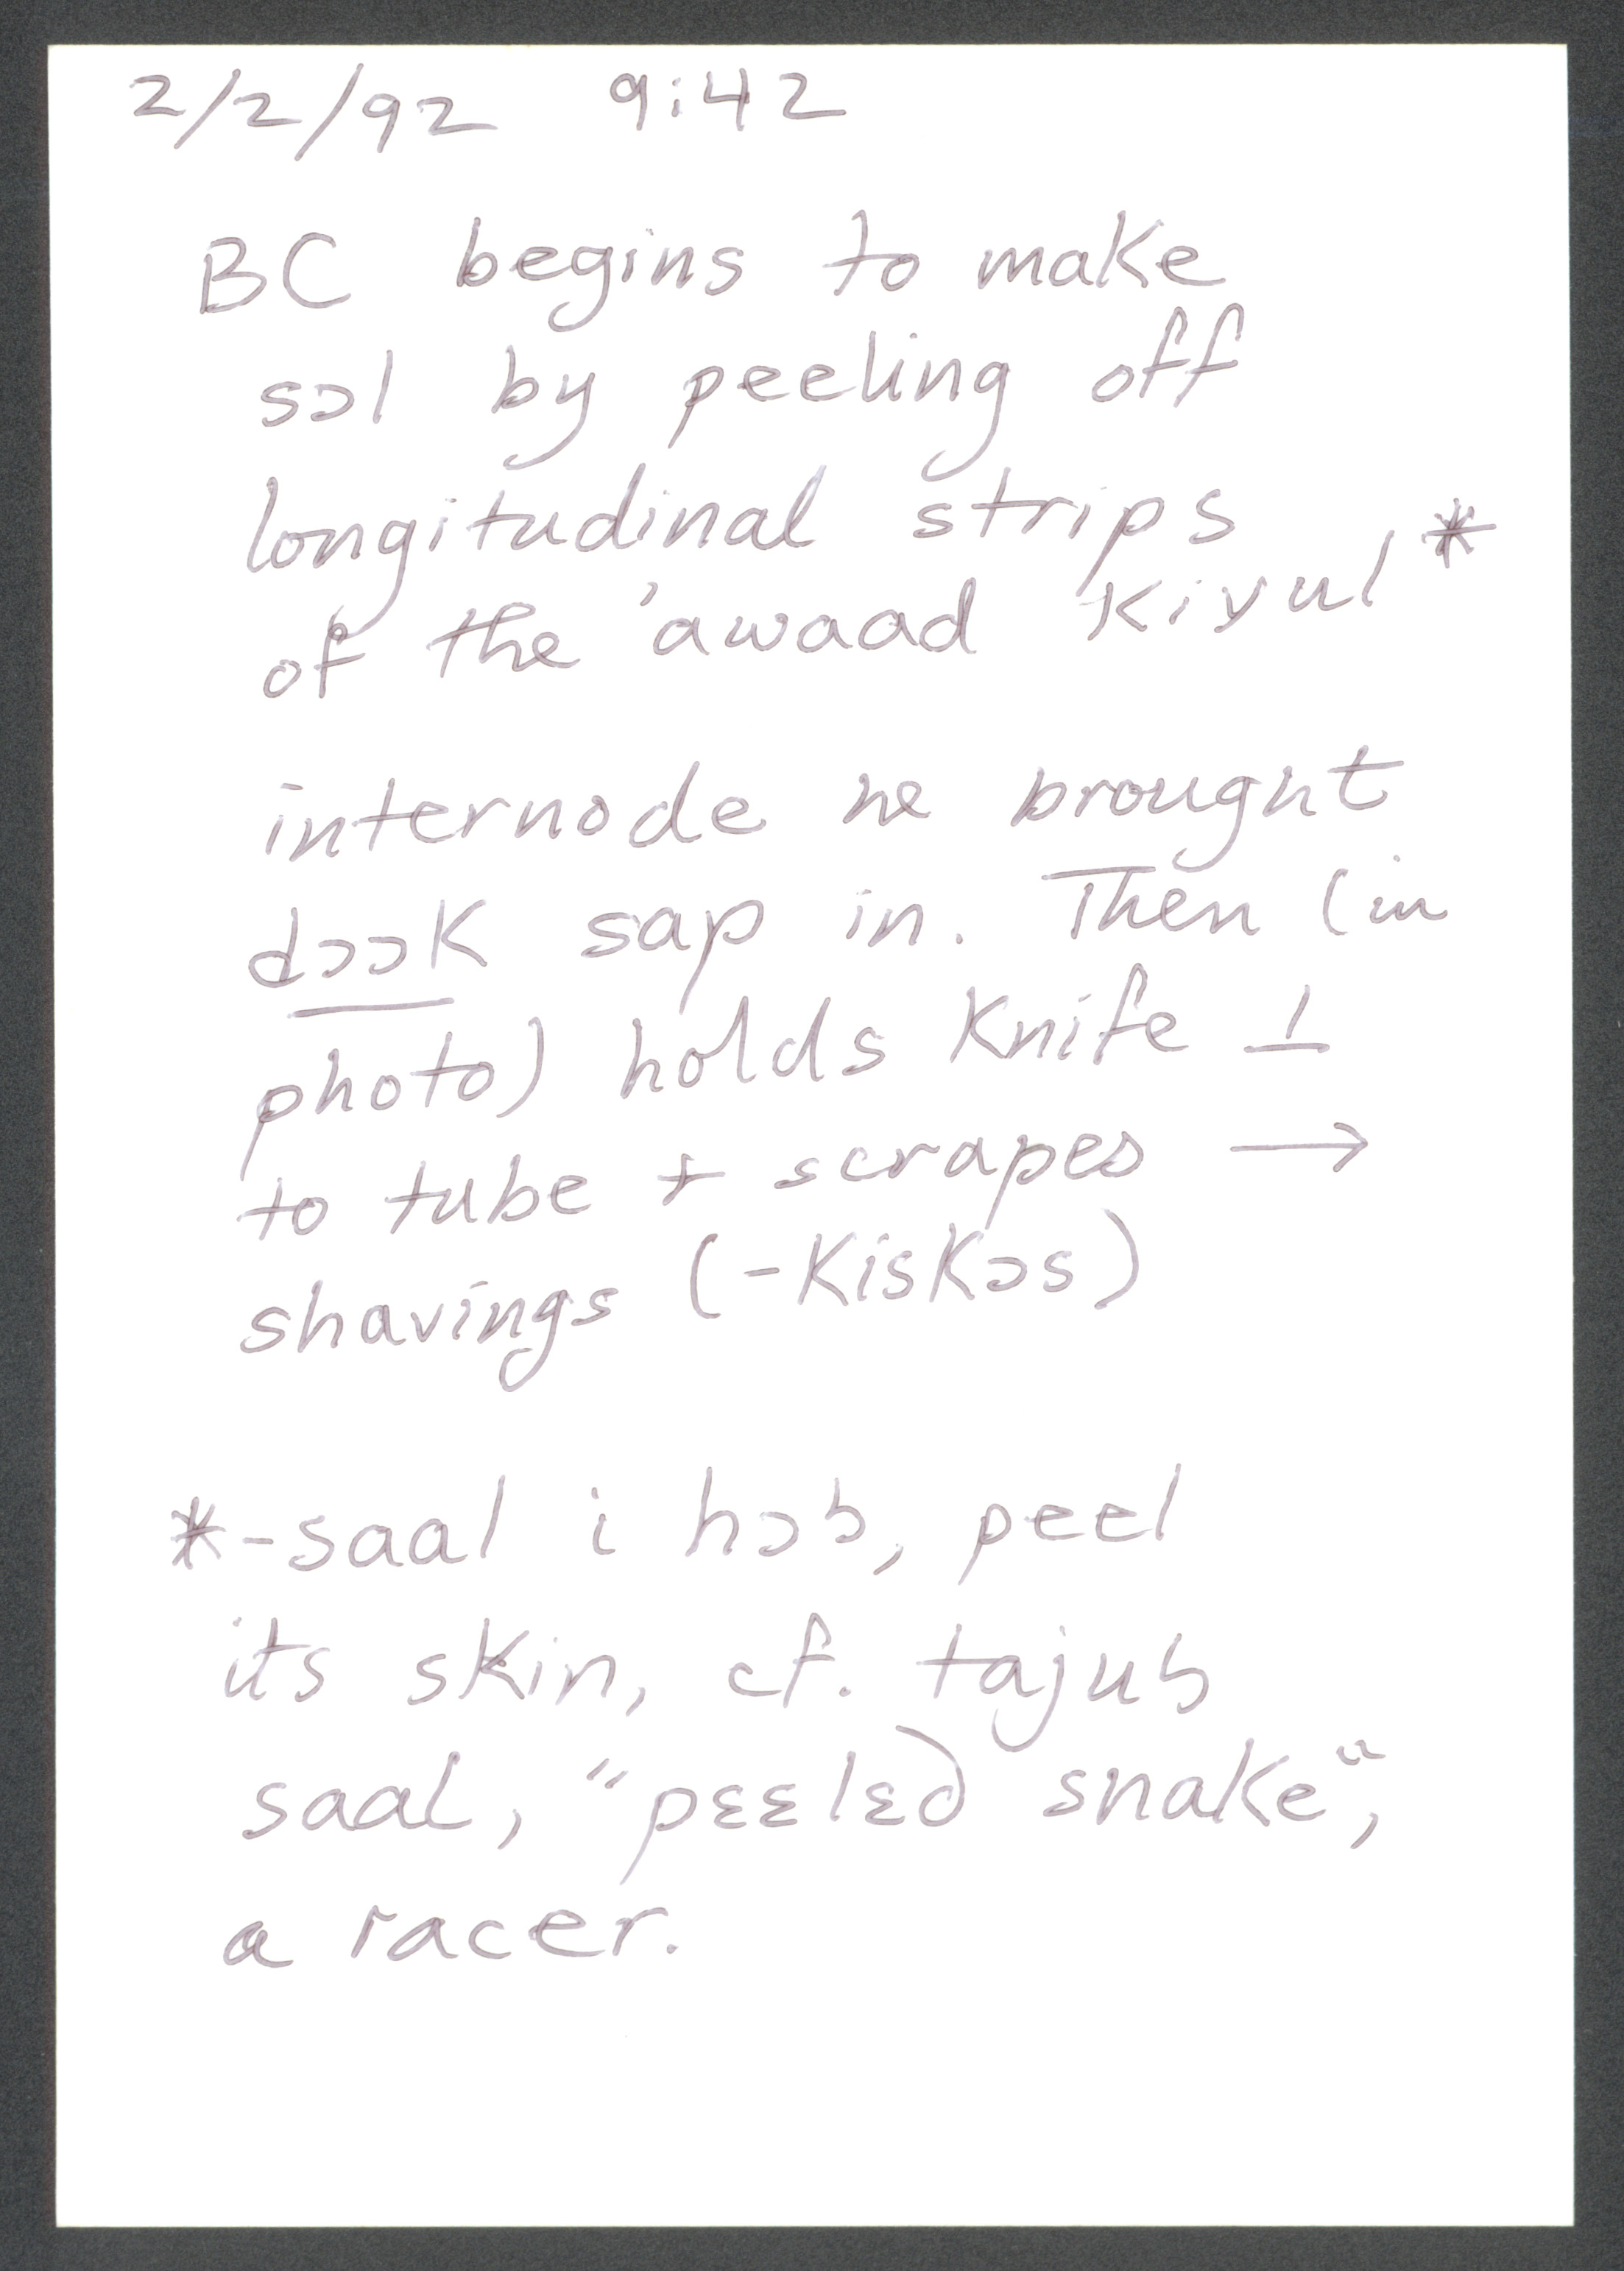 2/2/92 9:42
BC begins to make
sɔl by peeling off
longitudinal strips
of the 'awaad kiyul *
internode he brought
dɔɔk sap in. Then (in
photo) holds knife ⊥
to tube + scrapes →
shavings (-kiskɔs)
*-saal i hɔb, peel
its skin, cf. tajub
saal, "pɛɛlɛd snake",
a racer.